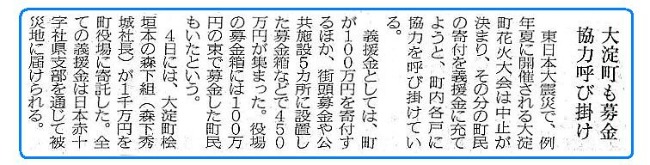 大淀町も募金
協力呼び掛け
東日本大震災で、例
年夏に開催される大淀
町花火大会は中止が
決まり、その分の町民
の寄付を義援金に充て
ようと、町内各戸に
協力を呼び掛けてい
る。
義援金としては、町
が１００万円を寄付す
るほか、街頭募金や公
共施設５カ所に設置し
た募金箱などで４５０
万円が集まった。役場
の募金箱には１００万
円の束で募金した町民
もいたという。
４日には、大淀町桧
垣本の森下組（森下秀
城社長）が１千万円を
町役場に寄託した。全
ての義援金は日本赤十
字社県支部を通じて被
災地に届けられる。